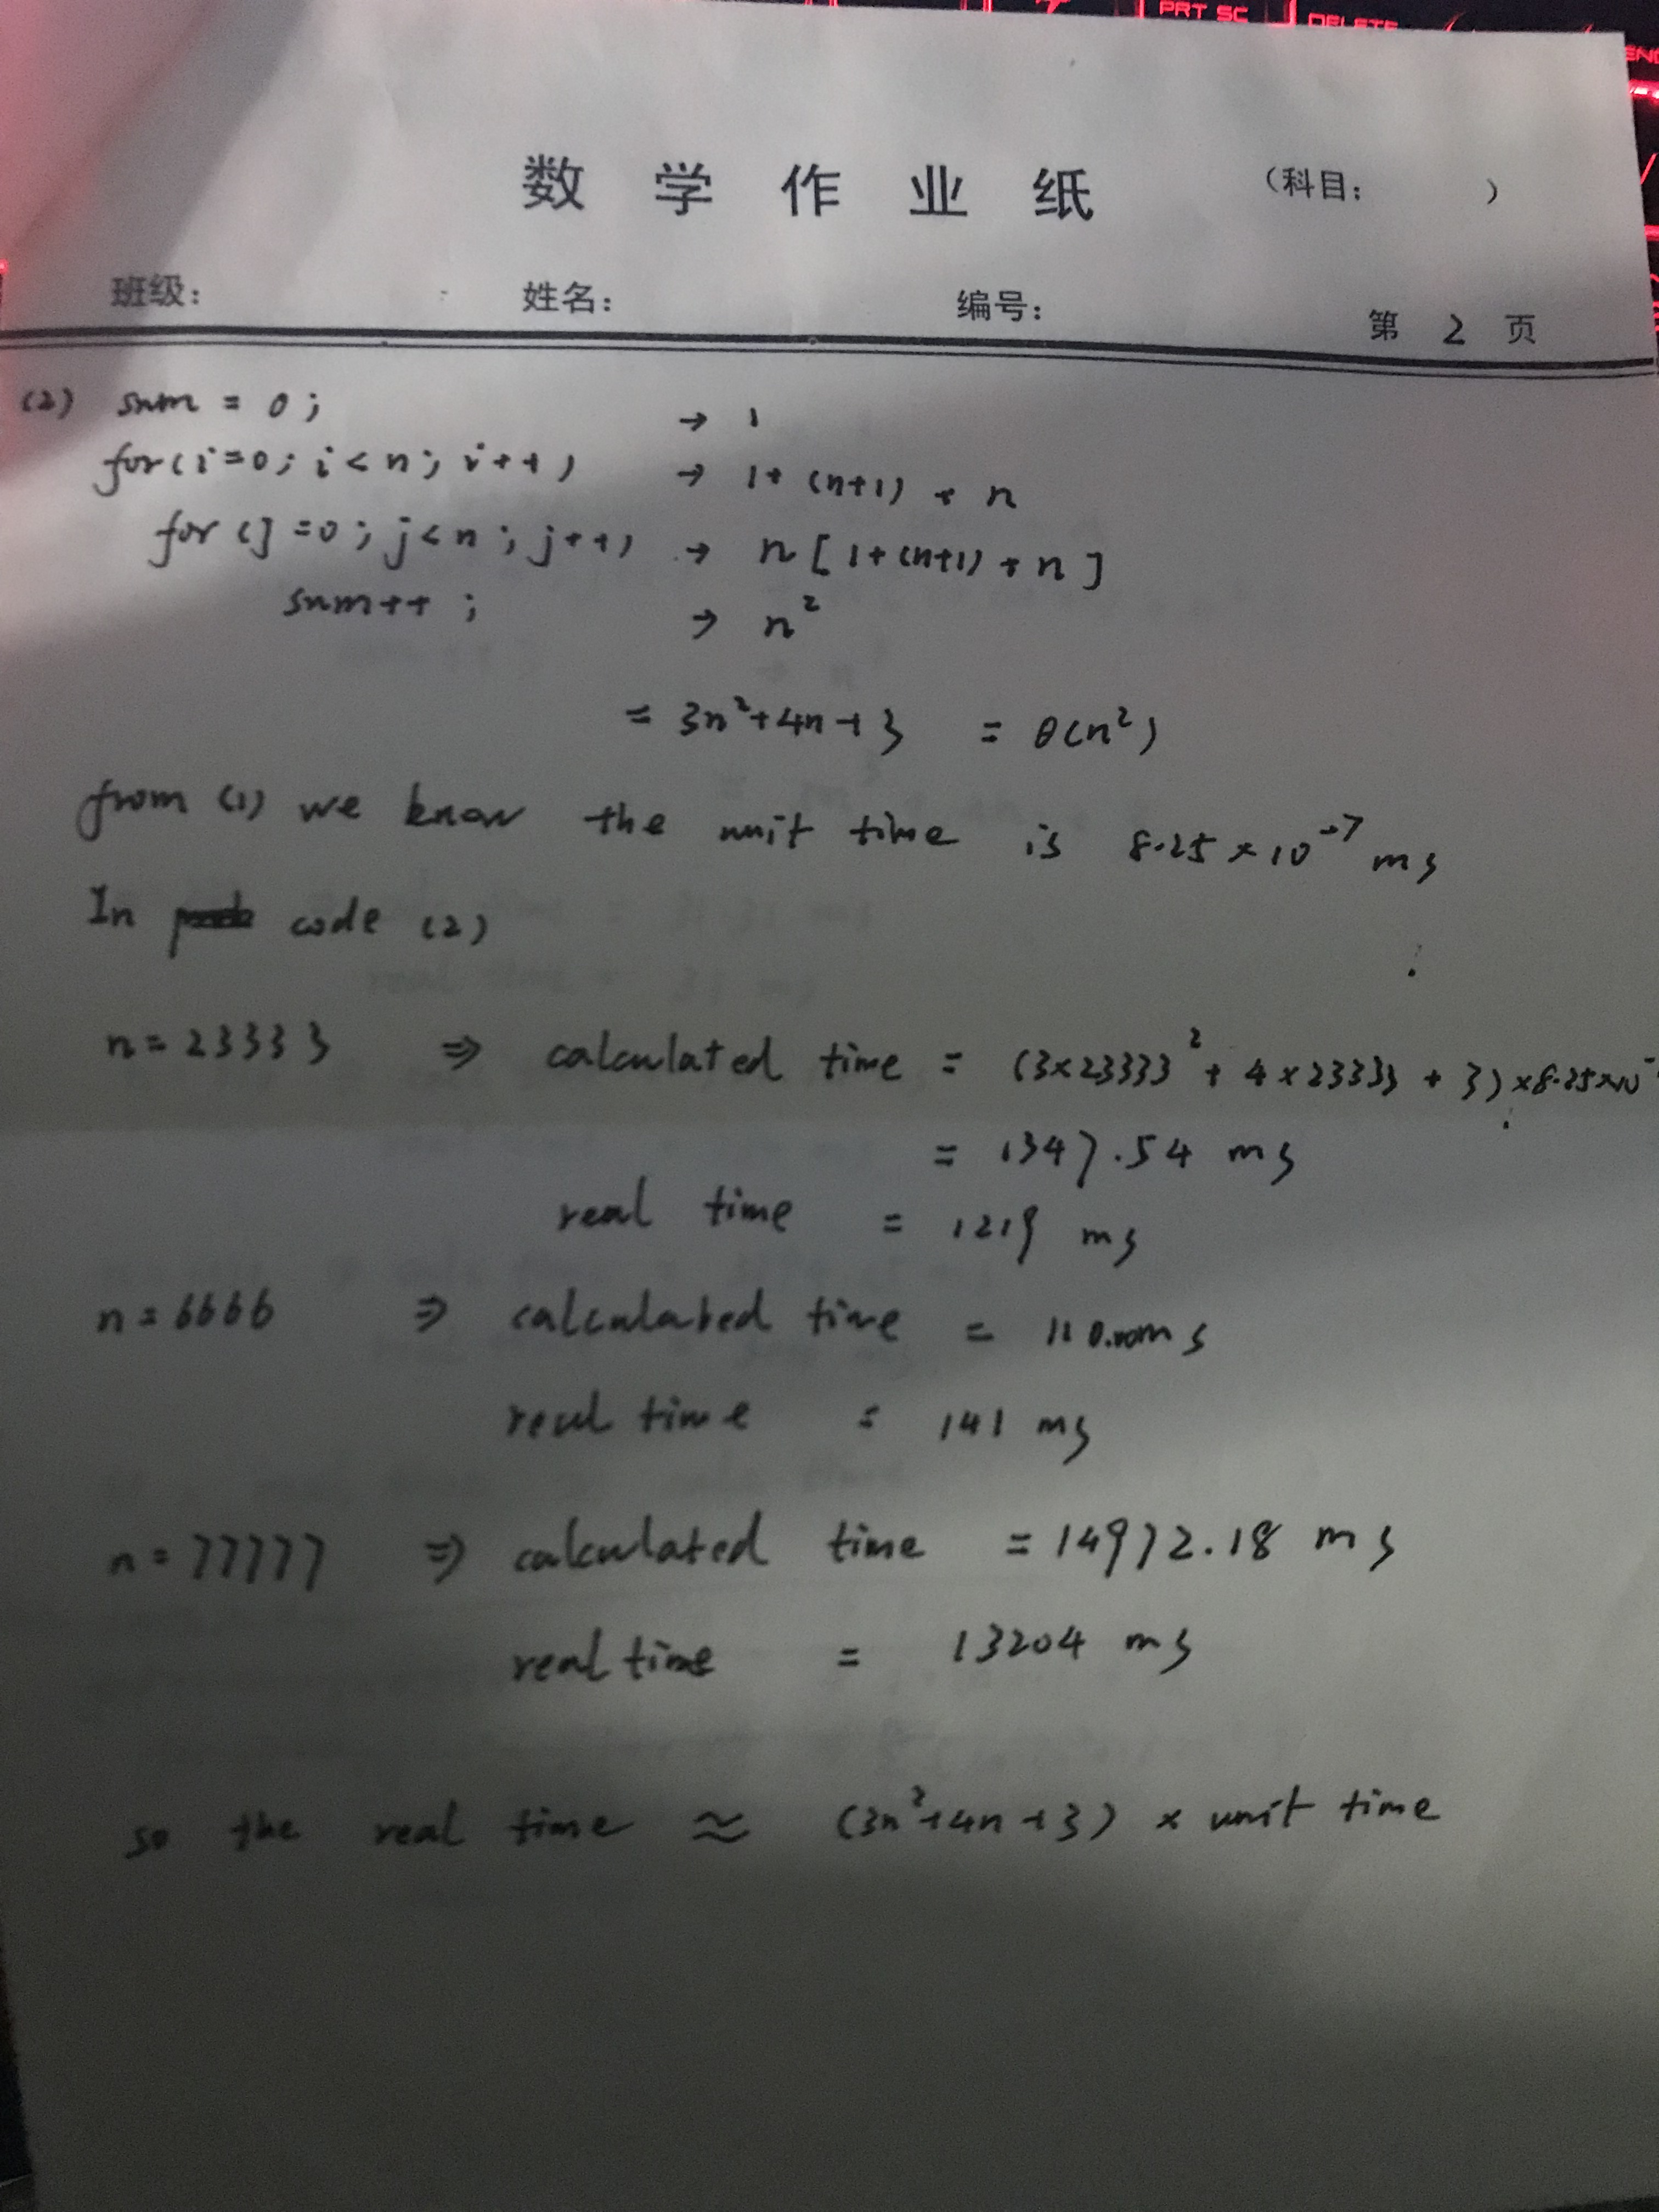 PRT SC
DELETE
END
数学作业纸 (科目: )
班级: 姓名: 编号: 第 2 页
(2) sum = 0; → 1
for(i=0; i<n; i++) → 1+(n+1)+n
for(j=0; j<n; j++) → n[1+(n+1)+n]
sum++; → n²
= 3n²+4n+3 = θ(n²)
from (1) we know the unit time is 8.25×10⁻⁷ ms
In code (2)
n=23333 ⇒ calculated time = (3×23333²+4×23333+3)×8.25×10⁻
= 1347.54 ms
real time = 1219 ms
n=6666 ⇒ calculated time = 110.00ms
real time = 141 ms
n=77777 ⇒ calculated time = 14972.18 ms
real time = 13204 ms
so the real time ≈ (3n²+4n+3) × unit time